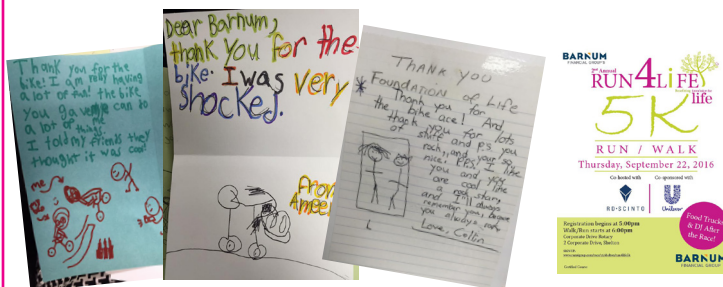 Thank you for the
bike! I am relly having
a lot of fun! the bike
You gave can do
a lot of
things.
I told my friends they
thought it was cool!
Dear Barnum,
thank You for the
bike. I was very
Shocked.
From
Aimee!
THANK YOU
Foundation of Life
Thank you for
the bike ace! And
thank you for lots
of stuff and P.S. you
rock, and your so
nice! P.P.S. I like
you and you
are cool like
a rock star,
and I will always
remember you,
you always
Love, Collin
BARNUM
FINANCIAL GROUP'S
2nd Annual
RUN4LiFE
life
5K
RUN / WALK
Thursday, September 22, 2016
Co-hosted with
Co-sponsored with
RD·SCINTO
Unilever
Registration begins at 5:00pm
Walk/Run starts at 6:00pm
Corporate Drive Rotary
2 Corporate Drive, Shelton
Food Trucks
& DJ After
the Race!
BARNUM
FINANCIAL GROUP